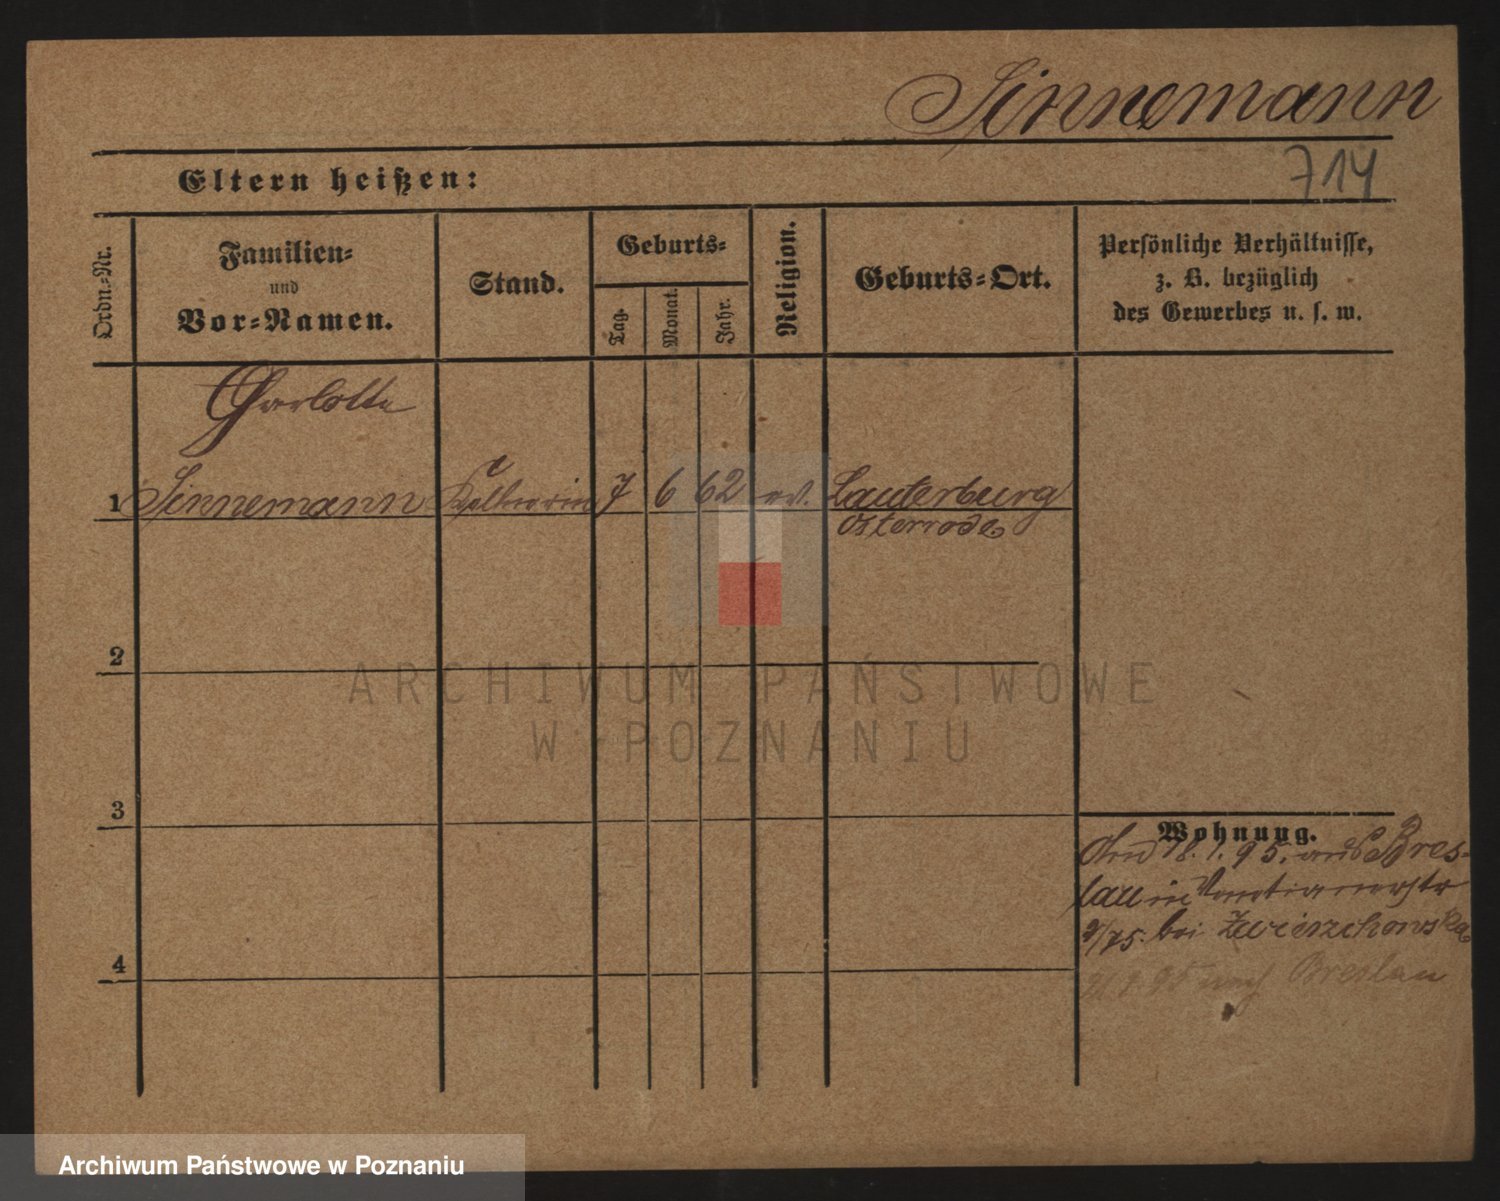 Sinnemann
714
Eltern heißen:
Ordn.-Nr.
Familien-
und
Vor-Namen.
Stand.
Geburts-
Tag.
Monat.
Jahr.
Religion.
Geburts-Ort.
Persönliche Verhältnisse,
z. B. bezüglich
des Gewerbes u. s. w.
Charlotte
1 Sinnemann Kellnerin 7 6 62 ev. Lauterburg
Osterrode
2
3
4
Wohnung.
18. 1. 95. aus Bres-
lau in Venetianerstr
bei Zwierzchowska
nach Breslau
ARCHIWUM PAŃSTWOWE
W POZNANIU
Archiwum Państwowe w Poznaniu